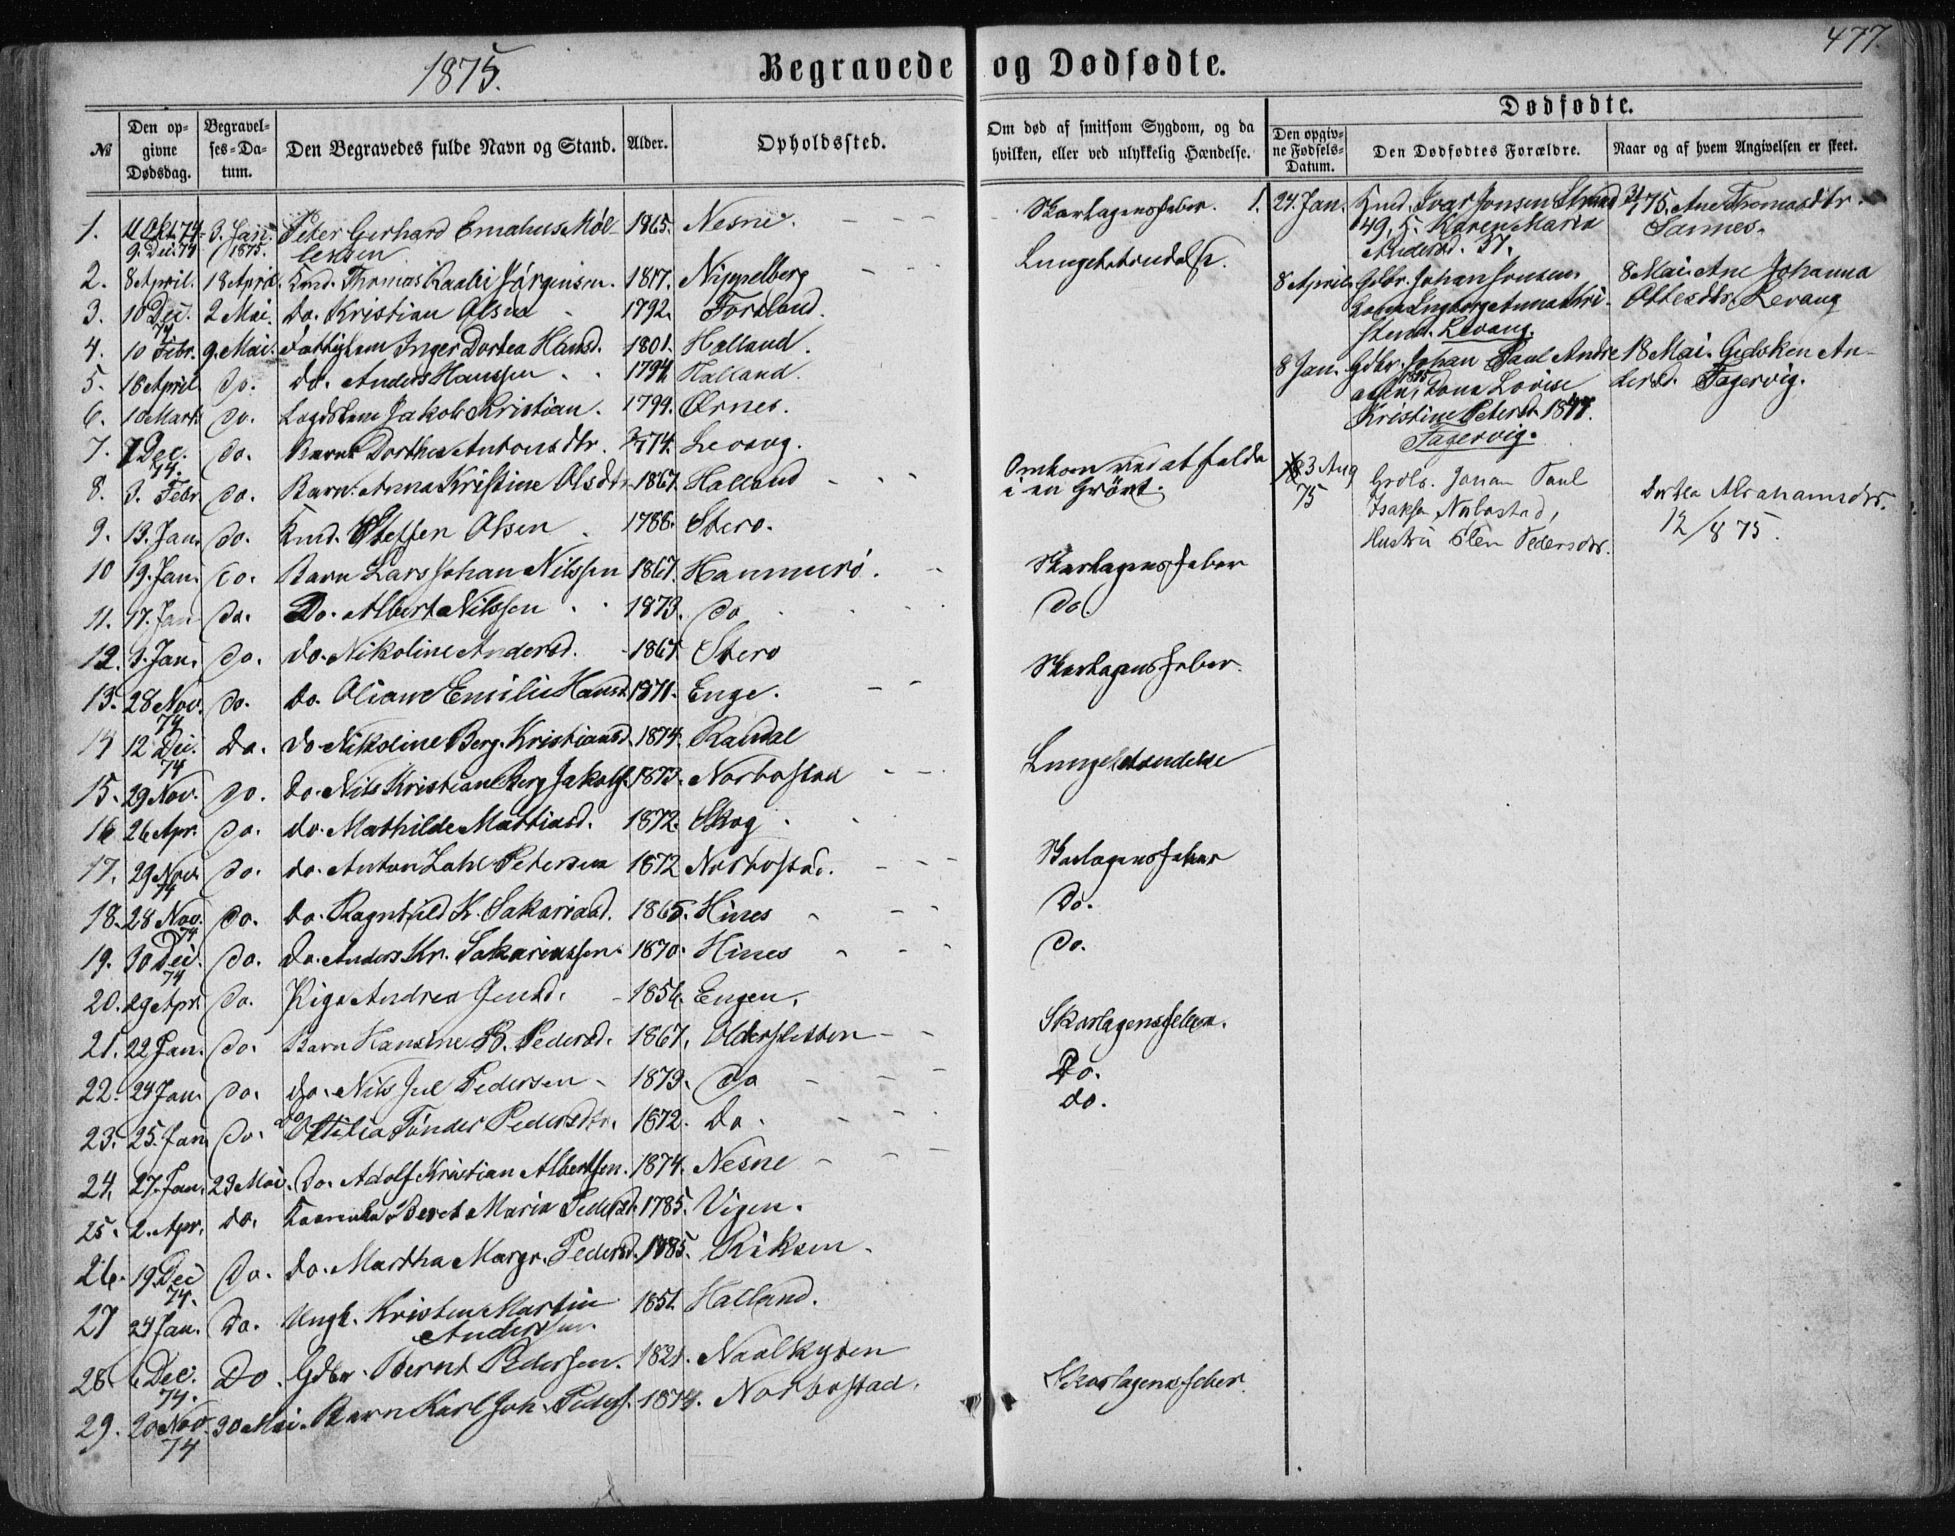 1875.
Begravede og Dødfødte.
477.
№
Den opgivne Dødsdag.
Begravelses-Datum.
Den Begravedes fulde Navn og Stand.
Alder.
Opholdssted.
Om død af smitsom Sygdom, og da hvilken, eller ved ulykkelig Hændelse.
Dødfødte.
Den opgivne Fødsels-Datum.
Den Dødfødtes Forældre.
Naar og af hvem Angivelsen er skeet.
1. 9. Dec. 74 3. Jan. 1875. Peter Gerhard Emahus Møllersen 1865. Nesne. Skarlagensfeber.
2. 8 April. 18 April. Kmd. Thomas Jørgensen. 1817. Nippelberg Lungebetændelse.
3. 10 Dec. 74 2 Mai. Do. Kristian Olsen 1792. Forsland.
4. 10 Febr. 9. Mai. Fattiglem Inger Dortea Hansd. 1801. Halland.
5. 18 April do. do. Anders Hanssen 1794. Halland.
6. 10 Marts do. Lagdslem Jakob Kristian. 1799. Ørnes.
7. 7 Dec. 74. do. Barn Dorthea Antonsdtr. Levang.
8. 3. Febr do. Barn. Anna Kristine Olsdtr 1867. Halland Omkom ved at falde
i en Grönt.
9. 13. Jan. do. Kmd. Steffen Olsen 1788. Stero.
10 19. Jan. do. Barn Lars Johan Nilssen 1867. Hammerö. Skarlagensfeber
11. 17. Jan do. Do. Albert Nilssen 1873. do do.
12. 3. Jan. do. do. Nikoline Andersd. 1867. Stero Skarlagensfeber.
13. 28 Nov. 74 do. do. Oliane Emilie Hansd. 1871. Enge.
14 12 Dec. 74 Do. do Nikoline Berg. Kristiansd. 1874. Randal Lungebetændelse
15. 29 Nov. do. do. Nils Kristian Berg Jakobs. 1873. Norbostad
16 26 Apr. do. do. Mathilde Mattiasd. 1872. Skog
17. 29 Nov. 74 do. do. Anton Zahl Petersen 1872 Norbostad. Skarlagensfeber
18. 28 Nov. 74 do. do. Ragnhild K. Sakariasd. 1865. Hines Do.
19. 30 Dec. 74 do. Do. Anders Kr. Sakariassen. 1870. Hines do.
20. 29 Apr. do. Pige Andrea Jensd. 1854. Engen.
21. 22 Jan. do. Barn Hansine B. Pedersd. 1867. Oldersletten Skarlagensfeber.
22. 24 Jan. do. do. Nils Jul Pedersen 1873. do Do.
23. 25. Jan do. do Ottilia Tönder Pedersdtr. 1872. do. do.
24. 27. Jan. 23 Mai. Do. Adolf Kristian Albertsen. 1874. Nesne
25. 2. Apr. do. Beret Maria Pedersd. 1785. Vigen.
26. 19. Dec 74. Do. do. Martha Margr. Pedersd. 1785. Riksen.
27 24 Jan. Do. Ungk. Kristen Martin
Andersen. 1851. Halland.
28 6 Dec. 74. Do. Gdbr. Bernt Pedersen. 1821. Naalkyten
29. 20 Nov. 74 30 Mai. Barn Karl Joh. Peders. 1874. Norbostad. Skarlagensfeber.
1. 24. Jan. Kmd. Ivar Jonsen Strand
49, K. Karen Maria
Andersd. 37.
75. Ane Thomasdtr.
Sannes.
8 April Gdbr. Johan Jonsen
Kona Ingeborg Anna Kri-
stensd. Levang
8 Mai. Ane Johanna
Ottesdtr. Levang
8 Jan. Gdbr. Johan Paul Andre
asen, Kona Lovise
Kristine Petersd. 1847.
Fagervig.
18 Mai. Gidsken An-
dersd. Fagervig.
3 Aug
75
Grdb. Johan Paul
Isaks. Norbostad,
Hustru Elen Pedersdtr.
Dortea Abrahamsdtr.
12/8 75.